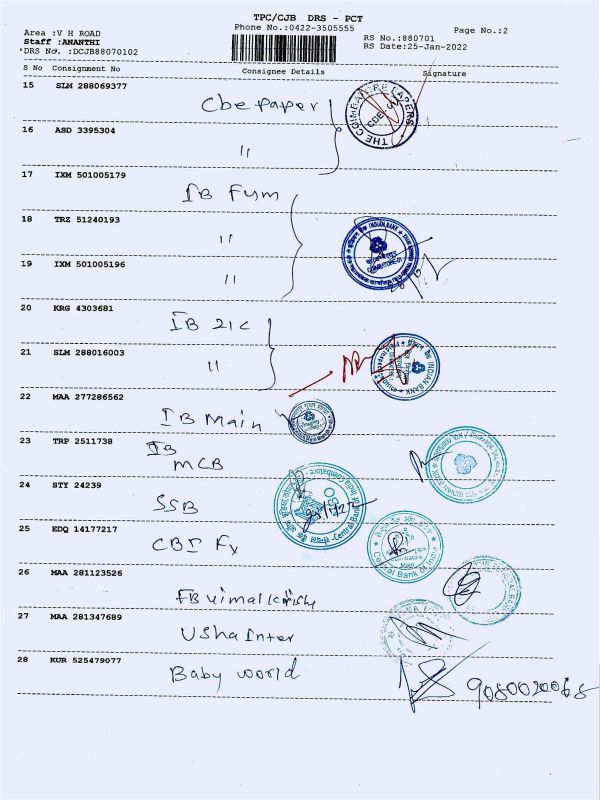 TPC/CJB DRS - PCT
Phone No.:0422-3505555
Area :V H ROAD
Staff :ANANTHI
DRS No. :DCJB88070102
RS No.:880701
Page No.:2
RS Date:25-Jan-2022
S No Consignment No Consignee Details Signature
15 SLM 288069377
Cbe Paper
THE COIMBATORE PAPERS
16 ASD 3395304
"
17 IXM 501005179
IB Fym
18 TRZ 51240193
"
INDIAN BANK
19 IXM 501005196
"
20 KRG 4303681
IB 21C
21 SLM 288016003
"
INDIAN BANK
22 MAA 277286562
IB Main
23 TRP 2511738
IB
MCB
24 STY 24239
SSB
Central Bank of India Coimbatore
25 EDQ 14177217
CBI Fx
Central Bank of India
26 MAA 281123526
27 MAA 281347689
Usha Inter
28 KUR 525479077
Baby world